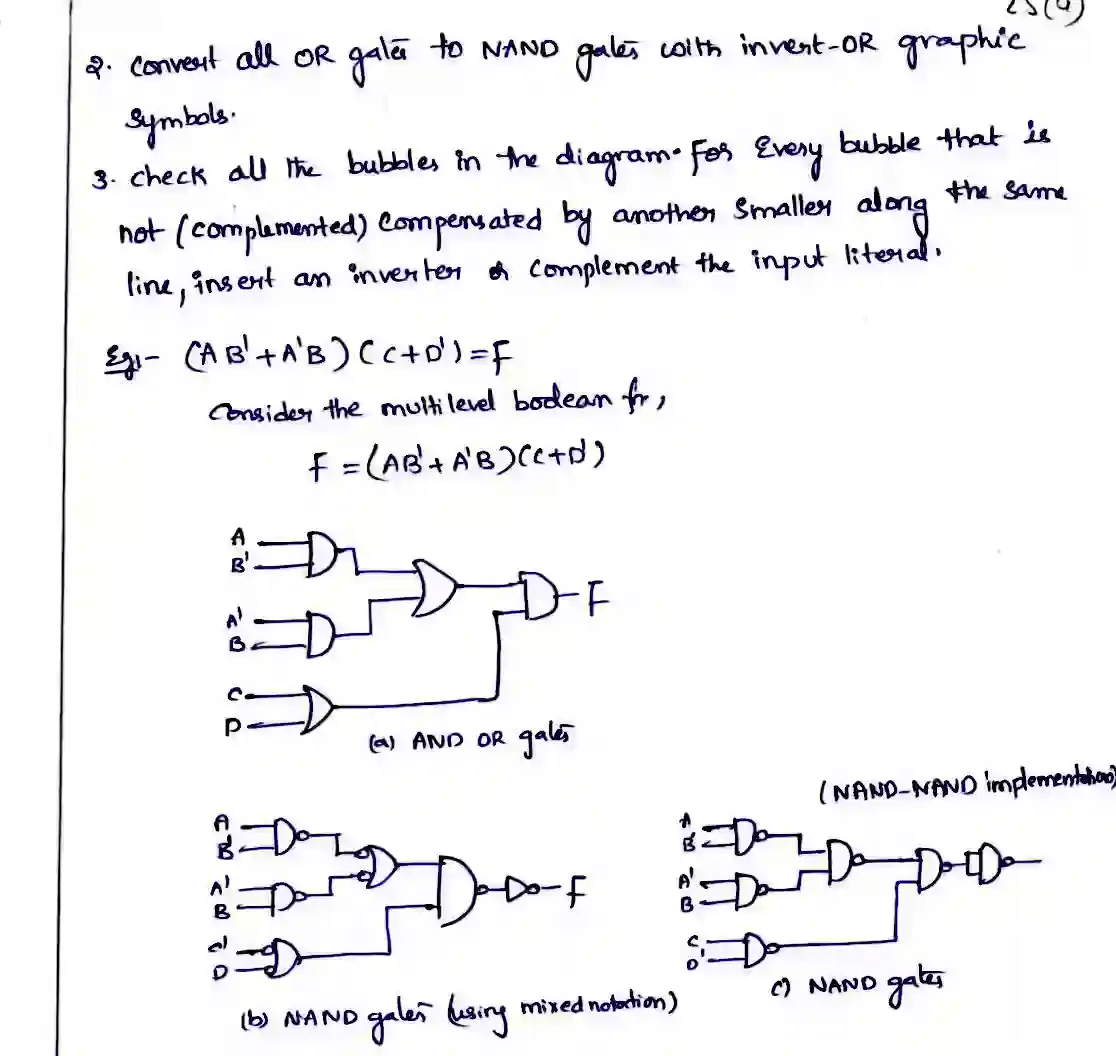 25(a)
2. Convert all OR gates to NAND gates with invert-OR graphic
symbols.
3. check all the bubbles in the diagram. For Every bubble that is
not (complemented) Compensated by another Smaller along the same
line, insert an inverter or complement the input literal.
Eg:- (AB'+A'B)(C+D')=F
Consider the multilevel boolean fn,
F=(AB'+A'B)(C+D')
A
B'
A'
B
C
D
F
(a) AND OR gates
(NAND-NAND implementation)
A
B'
A'
B
C'
D
F
(b) NAND gates (using mixed notation)
A
B'
A'
B
C
D'
c) NAND gates